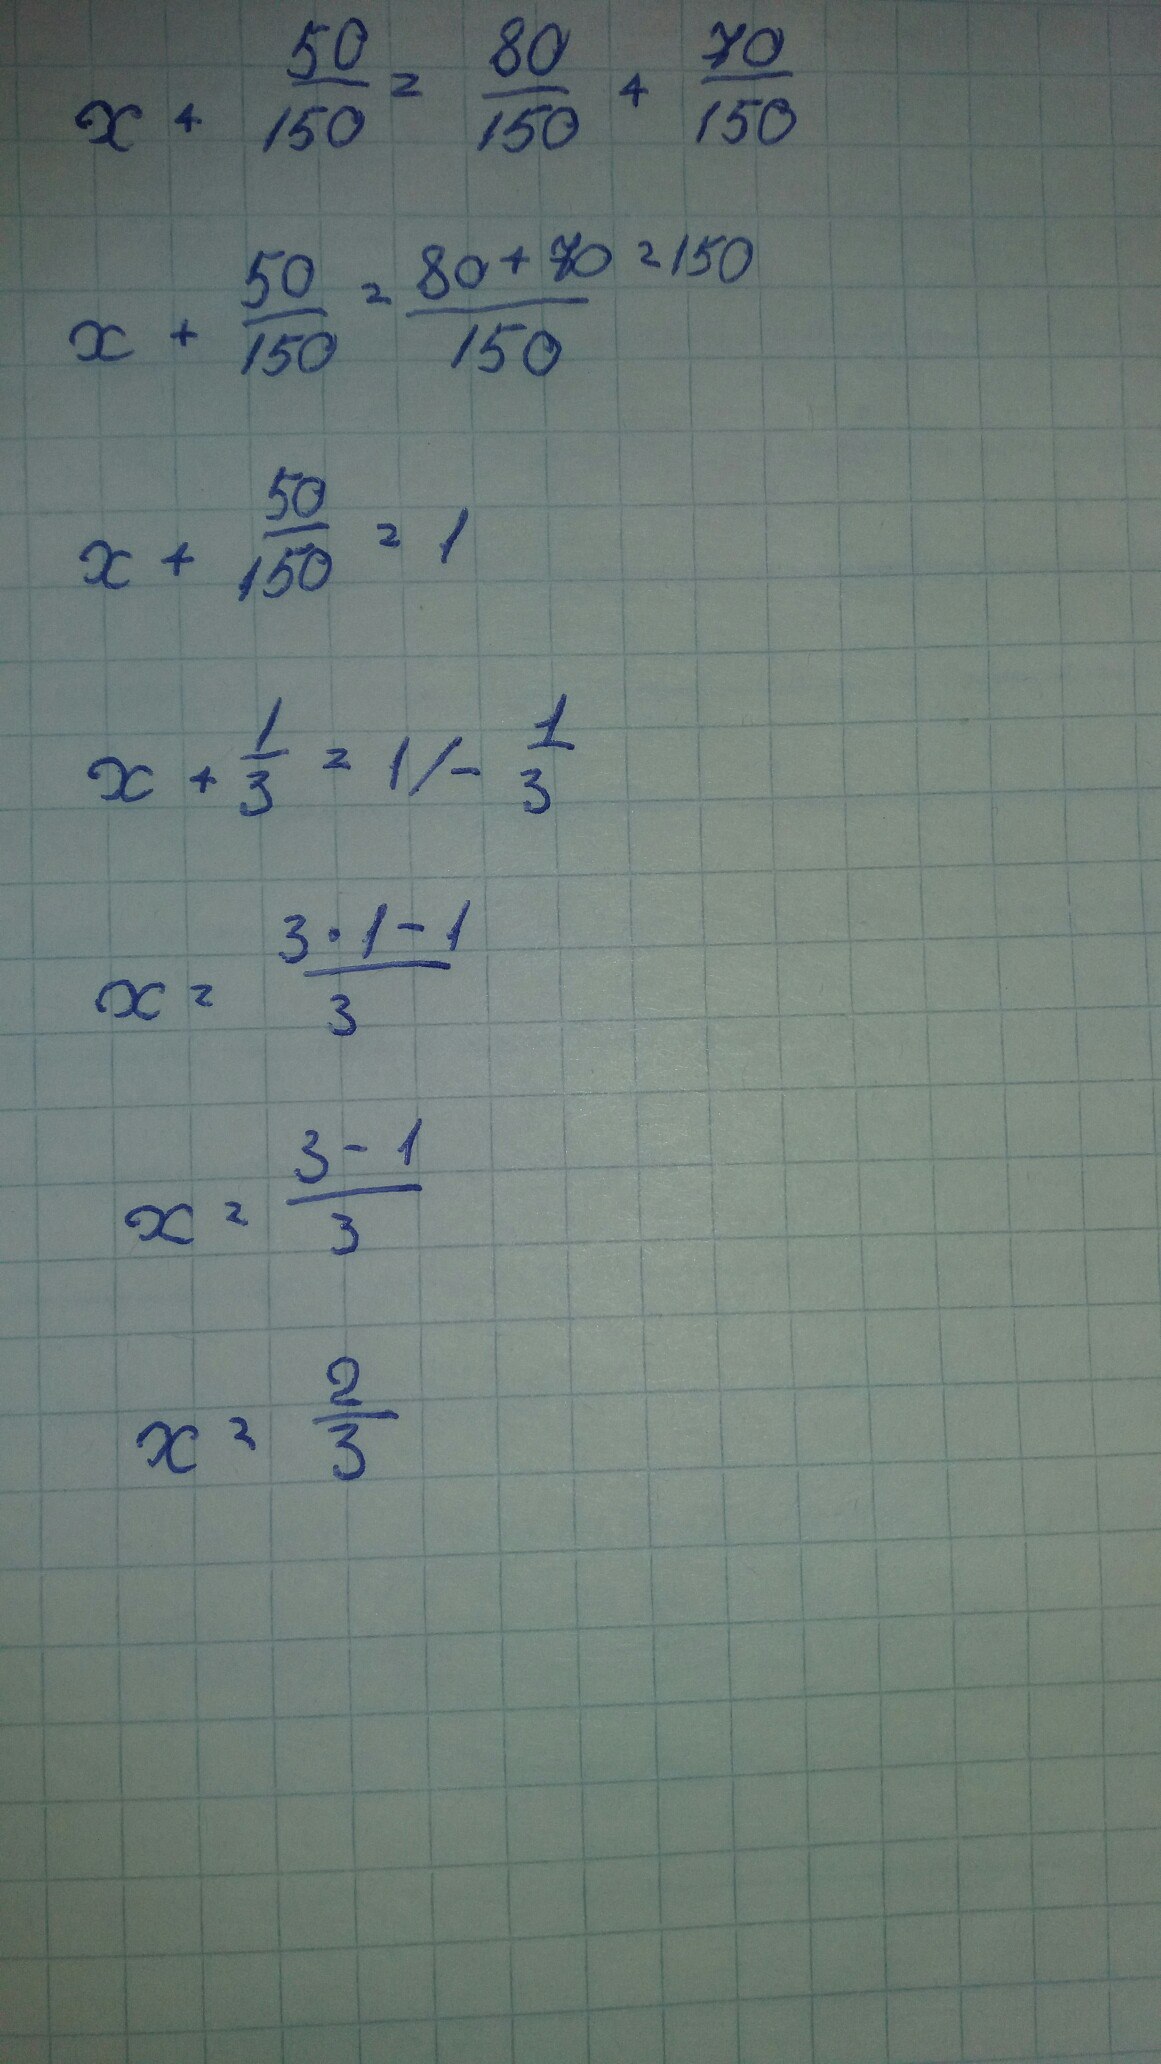 x + 50/150 = 80/150 + 70/150
x + 50/150 = (80 + 70 = 150)/150
x + 50/150 = 1
x + 1/3 = 1 /- 1/3
x = (3 · 1 - 1)/3
x = (3 - 1)/3
x = 2/3